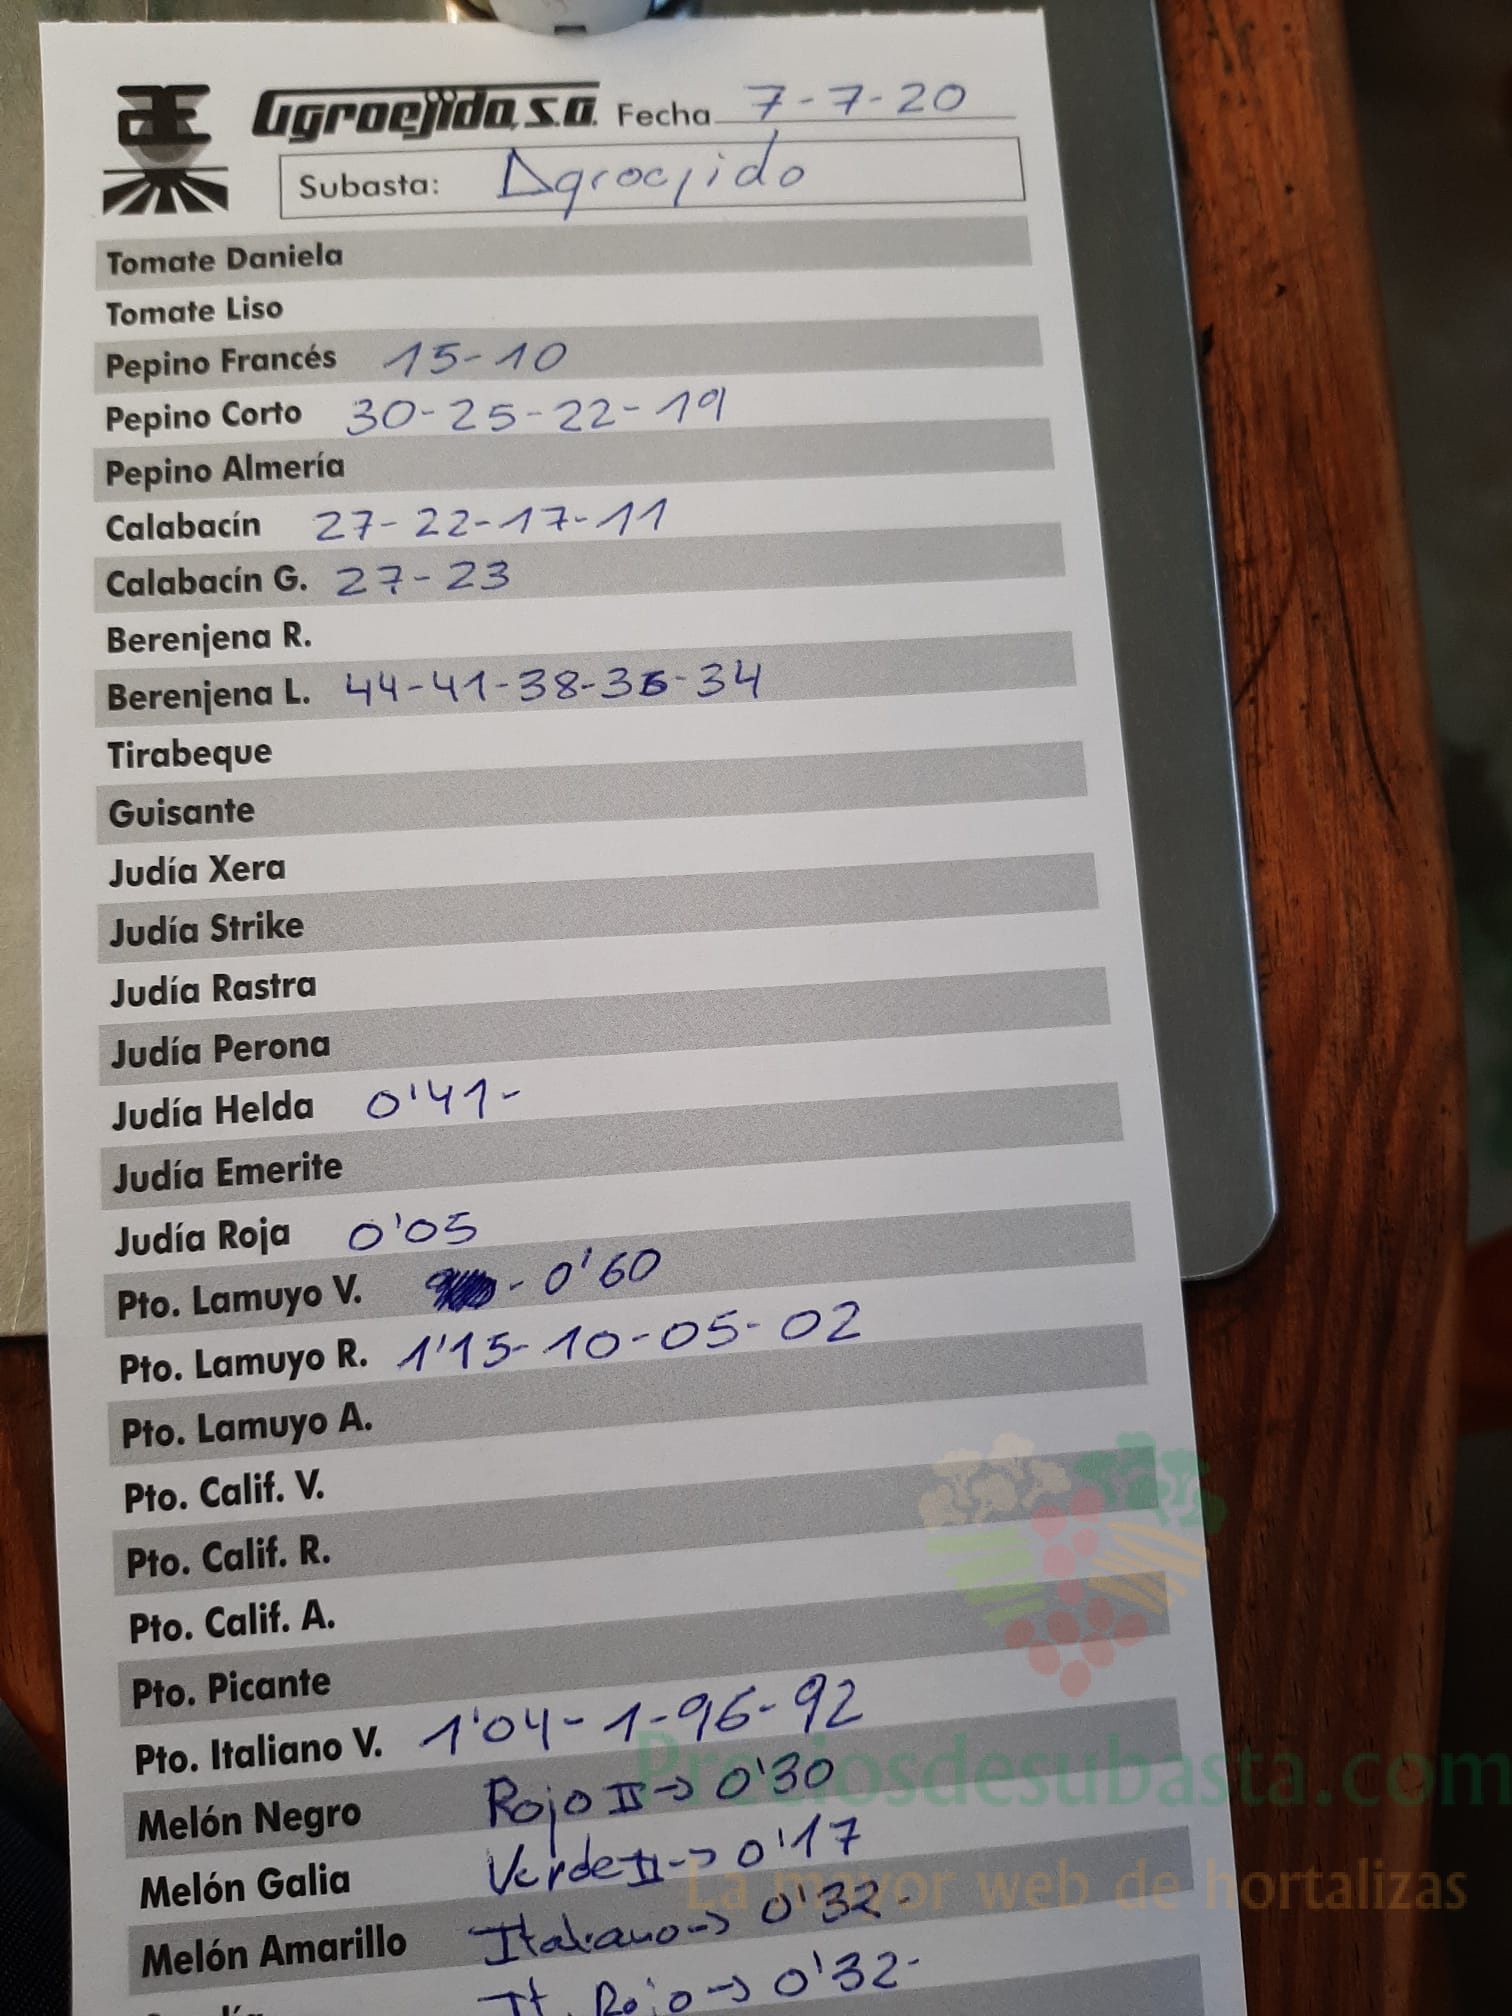 Agroejido, s.a. Fecha 7-7-20
Subasta: Agroejido
Tomate Daniela
Tomate Liso
Pepino Francés 15-10
Pepino Corto 30-25-22-19
Pepino Almería
Calabacín 27-22-17-11
Calabacín G. 27-23
Berenjena R.
Berenjena L. 44-41-38-36-34
Tirabeque
Guisante
Judía Xera
Judía Strike
Judía Rastra
Judía Perona
Judía Helda 0'41-
Judía Emerite
Judía Roja 0'05
Pto. Lamuyo V. - 0'60
Pto. Lamuyo R. 1'15-10-05-02
Pto. Lamuyo A.
Pto. Calif. V.
Pto. Calif. R.
Pto. Calif. A.
Pto. Picante
Pto. Italiano V. 1'04-1-96-92
Melón Negro Rojo II-> 0'30
Preciosdesubasta.com
Melón Galia Verde II-> 0'17
La mayor web de hortalizas
Melón Amarillo Italiano-> 0'32-
It. Rojo-> 0'32-